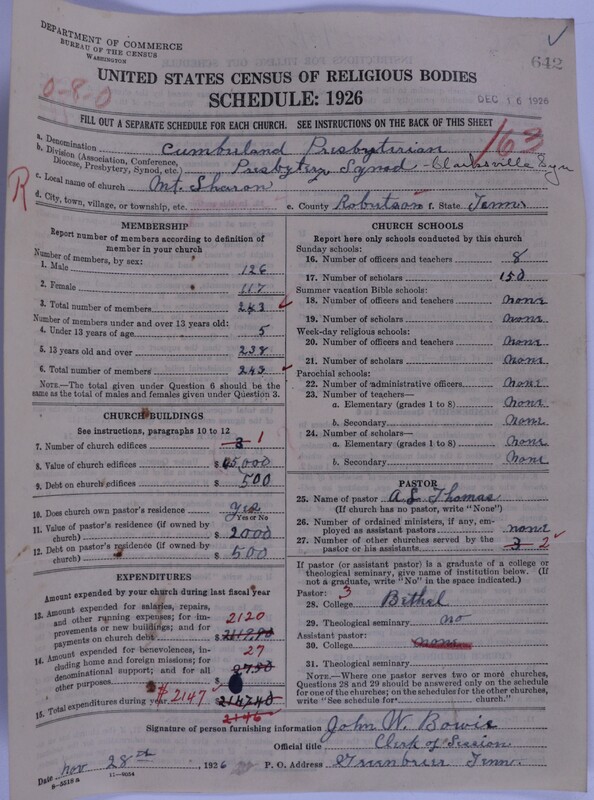 DEPARTMENT OF COMMERCE
BUREAU OF THE CENSUS
WASHINGTON
642
UNITED STATES CENSUS OF RELIGIOUS BODIES
SCHEDULE: 1926
0-8-0
DEC 16 1926
FILL OUT A SEPARATE SCHEDULE FOR EACH CHURCH. SEE INSTRUCTIONS ON THE BACK OF THIS SHEET
a. Denomination Cumberland Presbyterian
163
b. Division (Association, Conference, Diocese, Presbytery, Synod, etc.) Presbytery Synod - Clarksville
c. Local name of church Mt. Sharon
R
d. City, town, village, or township, etc. e. County Robertson f. State Tenn
MEMBERSHIP
Report number of members according to definition of member in your church
Number of members, by sex:
1. Male 126
2. Female 117
3. Total number of members 243
Number of members under and over 13 years old:
4. Under 13 years of age 5
5. 13 years old and over 238
6. Total number of members 243
NOTE.—The total given under Question 6 should be the same as the total of males and females given under Question 3.
CHURCH BUILDINGS
See instructions, paragraphs 10 to 12
7. Number of church edifices 3 1
8. Value of church edifices $ 15,000
9. Debt on church edifices $ 500
10. Does church own pastor's residence Yes
Yes or No
11. Value of pastor's residence (if owned by church) $ 2000
12. Debt on pastor's residence (if owned by church) $ 500
EXPENDITURES
Amount expended by your church during last fiscal year
13. Amount expended for salaries, repairs, and other running expenses; for improvements or new buildings; and for payments on church debt 2120
14. Amount expended for benevolences, including home and foreign missions; for denominational support; and for all other purposes 27 2750
15. Total expenditures during year $2147 2146
CHURCH SCHOOLS
Report here only schools conducted by this church
Sunday schools:
16. Number of officers and teachers 8
17. Number of scholars 150
Summer vacation Bible schools:
18. Number of officers and teachers none
19. Number of scholars none
Week-day religious schools:
20. Number of officers and teachers none
21. Number of scholars none
Parochial schools:
22. Number of administrative officers none
23. Number of teachers—
a. Elementary (grades 1 to 8) none
b. Secondary none
24. Number of scholars—
a. Elementary (grades 1 to 8) none
b. Secondary none
PASTOR
25. Name of pastor A L Thomas
(If church has no pastor, write "None")
26. Number of ordained ministers, if any, employed as assistant pastors none
27. Number of other churches served by the pastor or his assistants 3 2
If pastor (or assistant pastor) is a graduate of a college or theological seminary, give name of institution below. (If not a graduate, write "No" in the space indicated.)
Pastor: 3
28. College Bethel
29. Theological seminary no
Assistant pastor:
30. College none
31. Theological seminary
NOTE.—Where one pastor serves two or more churches, Questions 28 and 29 should be answered only on the schedule for one of the churches; on the schedules for the other churches, write "See schedule for church."
Signature of person furnishing information John W. Bowie
Official title Clerk of Session
Date Nov 28th, 1926 P. O. Address Greenbrier Tenn.
8-5518 a 11-4654